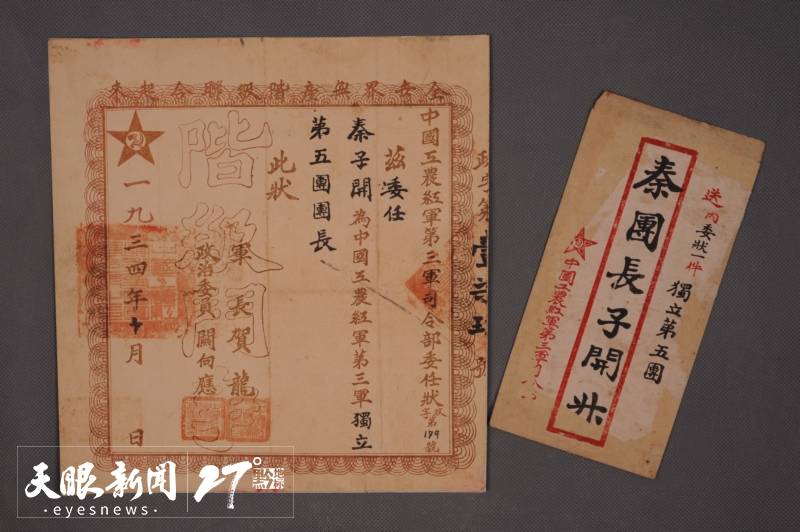 全世界無產階級聯合起來
中國工農紅軍第三軍司令部委任狀 字第179號
茲委任
秦子開為中國工農紅軍第三軍獨立
第五團團長、
此狀
軍長賀龍
政治委員關向應
一九三四年十月 日
階級
送
內委狀一件 獨立第五團
秦團長子開收
中國工農紅軍第三軍司
天眼新闻 27°
·eyesnews·